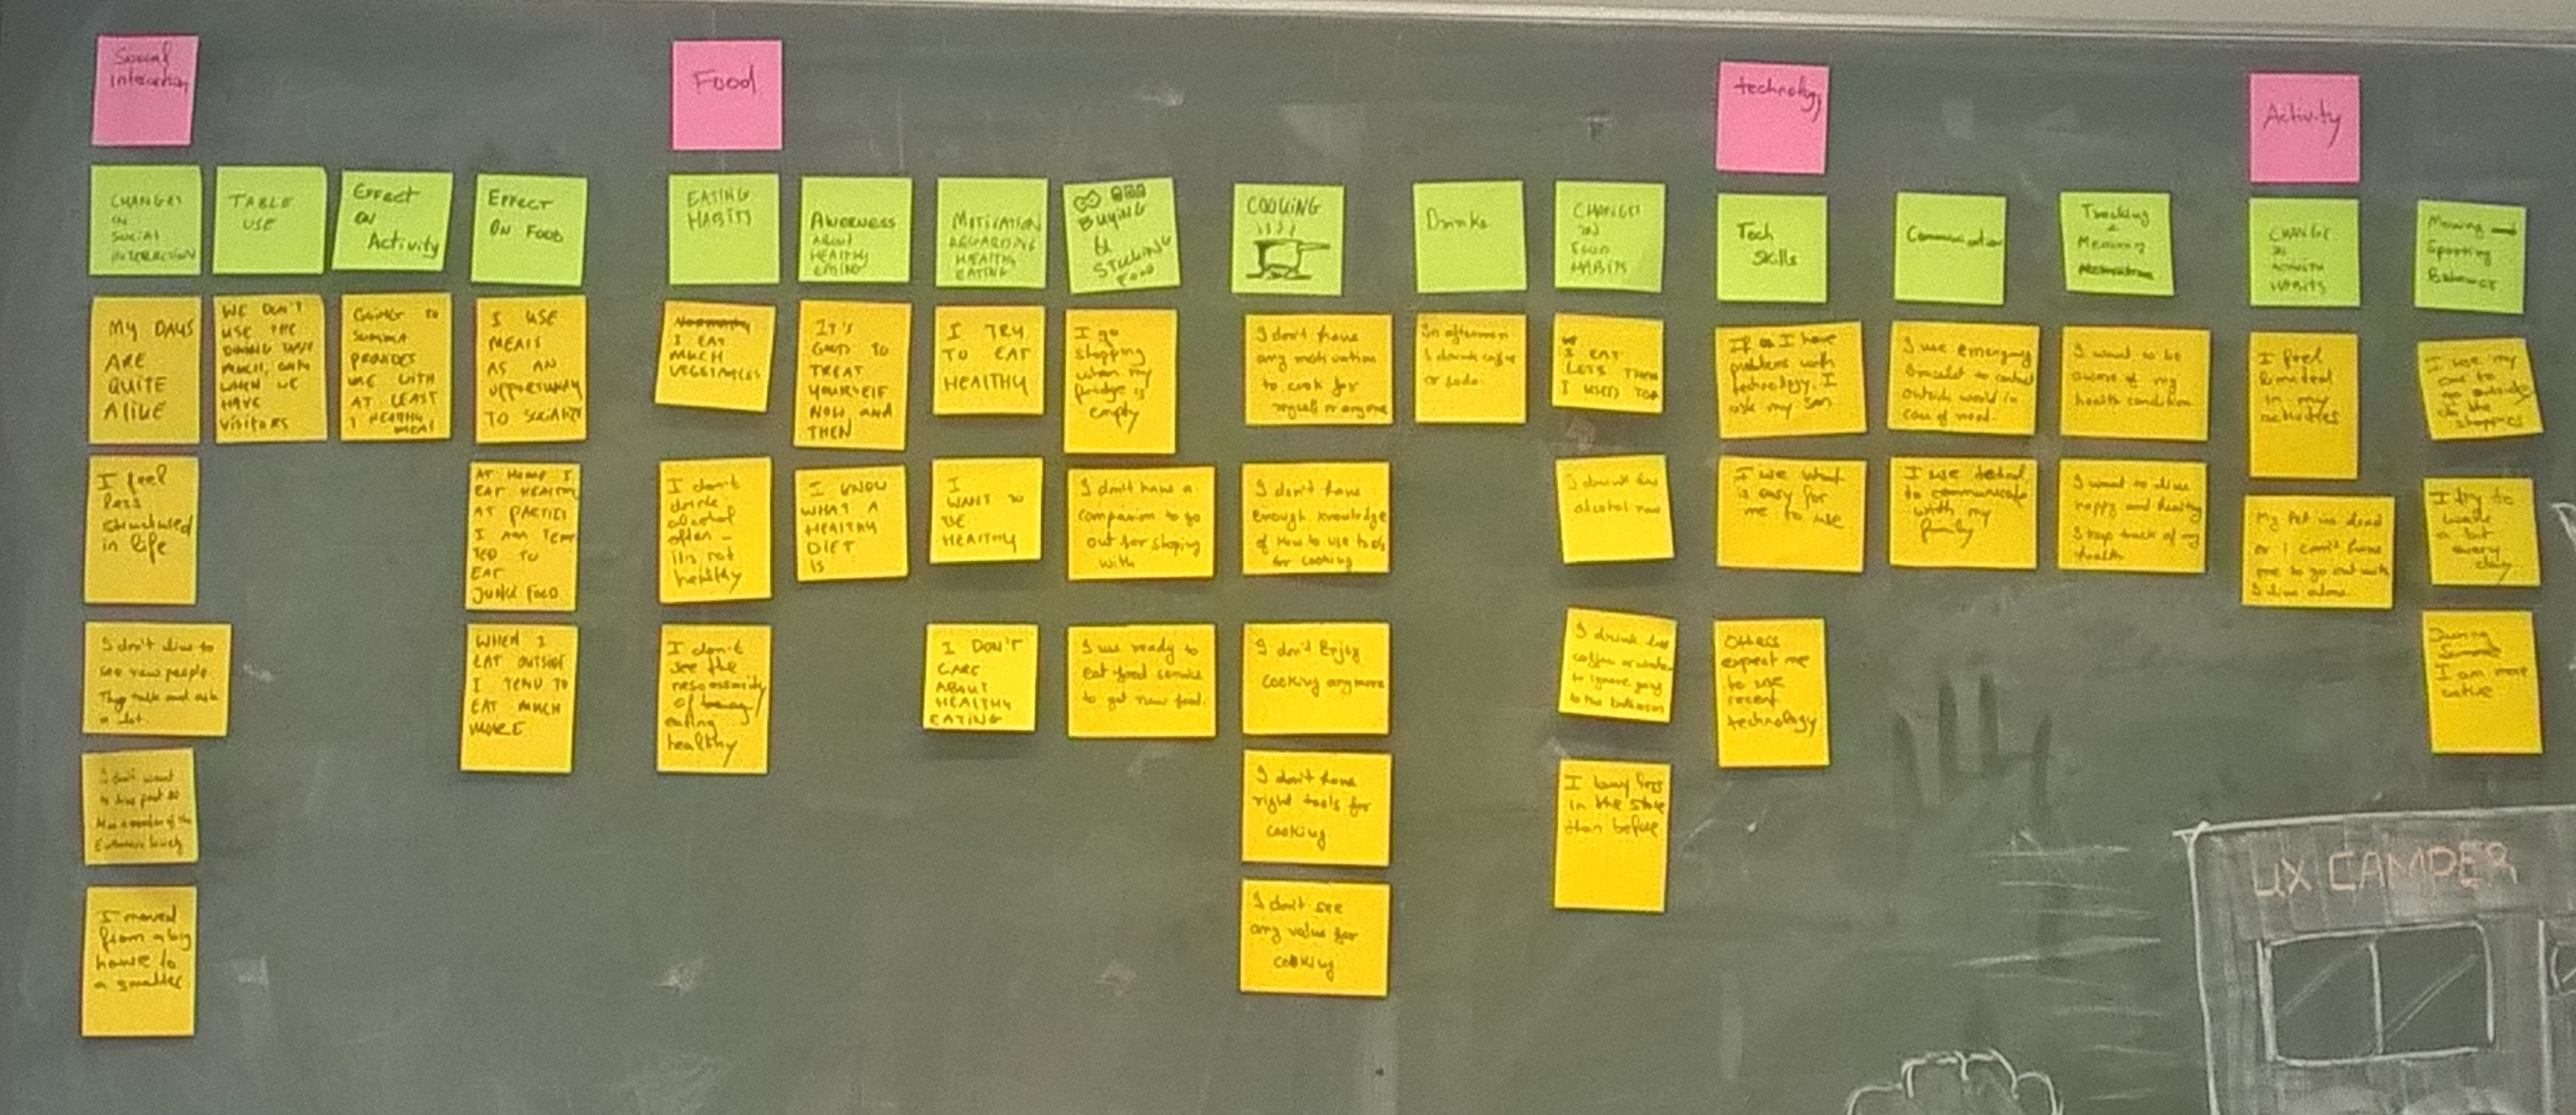 Social
Interaction
CHANGES
IN
SOCIAL
INTERACTION
MY DAYS
ARE
QUITE
ALIVE
I feel
less
structured
in life
I don't like to
see new people.
They talk and ask
a lot
I don't want
I moved
from a big
house to
a smaller
TABLE
USE
WE DON'T
USE THE
DINING TABLE
MUCH, ONLY
WHEN WE
HAVE
VISITORS
Effect
on
Activity
Going to
SUMMA
PROVIDES
ME WITH
AT LEAST
1 HEALTHY
MEAL
EFFECT
ON FOOD
I USE
MEALS
AS AN
OPPORTUNITY
TO SOCIALIZE
AT HOME I
EAT HEALTHY
AT PARTIES
I AM TEMP
TED TO
EAT
JUNK FOOD
WHEN I
EAT OUTSIDE
I TEND TO
EAT MUCH
MORE
Food
EATING
HABITS
I EAT
MUCH
VEGETABLES
I don't
drink
alcohol
often -
it's not
healthy
I don't
see the
of
eating
healthy
AWERNESS
About
HEALTHY
EATING
IT'S
GOOD TO
TREAT
YOURSELF
NOW AND
THEN
I KNOW
WHAT A
HEALTHY
DIET
IS
MOTIVATION
REGARDING
HEALTHY
EATING
I TRY
TO EAT
HEALTHY
I
WANT TO
BE
HEALTHY
I DON'T
CARE
ABOUT
HEALTHY
EATING
BUYING
&
FOOD
I go
shopping
when my
fridge is
empty
I don't have a
companion to go
out for shoping
with
I use ready to
eat food service
to get new food.
COOKING
I don't have
any motivation
to cook for
myself or anyone
I don't have
enough knowledge
of how to use tools
for cooking
I don't Enjoy
cooking anymore
I don't have
right tools for
cooking
I don't see
any value for
cooking
Drinks
In afternoon
I drink coffee
or soda
CHANGES
IN
FOOD
HABITS
I EAT
LESS THAN
I USED TO
I drink less
alcohol now
I drink less
coffee or water
to ignore going
to the bathroom
I buy less
in the store
than before
technology
Tech
Skills
If I have
problems with
technology, I
ask my son
I use what
is easy for
me to use
Others
expect me
to use
recent
technology
Communication
I use emergency
bracelet to contact
outside world in
case of need.
I use
to communicate
with my
family
Tracking
+
I want to be
aware of my
health condition
I want to live
happy and healthy
I keep track of my
health
Activity
CHANGE
IN
ACTIVITY
HABITS
I feel
limited
in my
activities
My Pet is dead
or I can't have
one to go out with
I live alone
Moving
Sporting
Balance
I use my
car to
go outside
to the
shoppies
I try to
walk
a bit
every
day
During
Summer
I am more
active
UX CAMPER